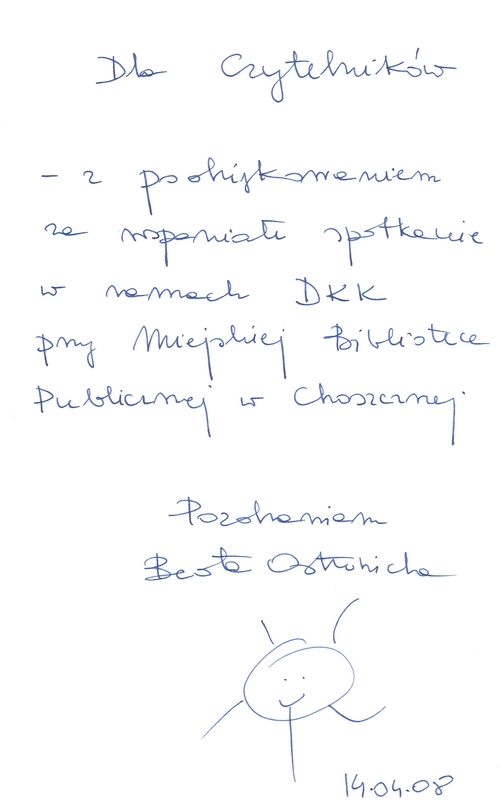 Dla Czytelników
- z podziękowaniem
za wspaniałe spotkanie
w ramach DKK
przy Miejskiej Bibliotece
Publicznej w Choszcznej
Pozdrawiam
Beata Ostrowicka
14.04.08